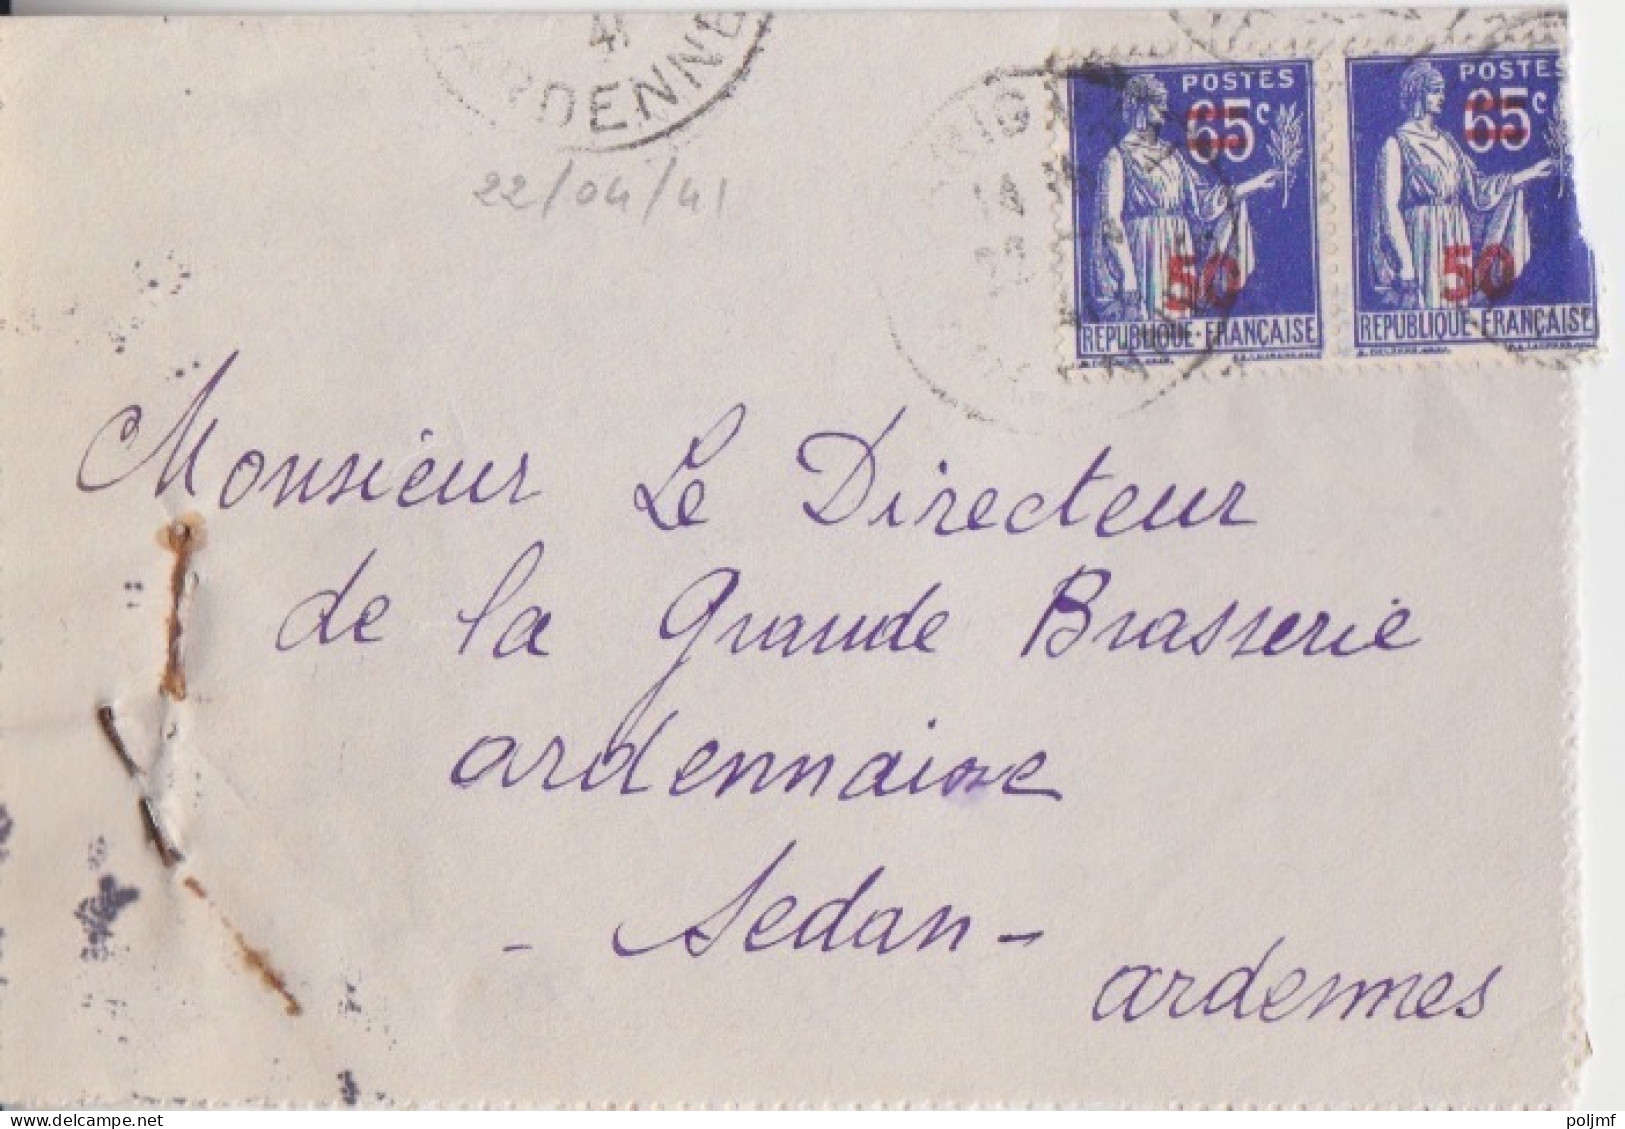 41
ARDENNE
22/04/41
POSTES
65c
50
REPUBLIQUE·FRANÇAISE
POSTES
65c
50
REPUBLIQUE·FRANÇAISE
Monsieur Le Directeur
de la Grande Brasserie
ardennaise
- Sedan -
ardennes
delcampe.net
poljmf